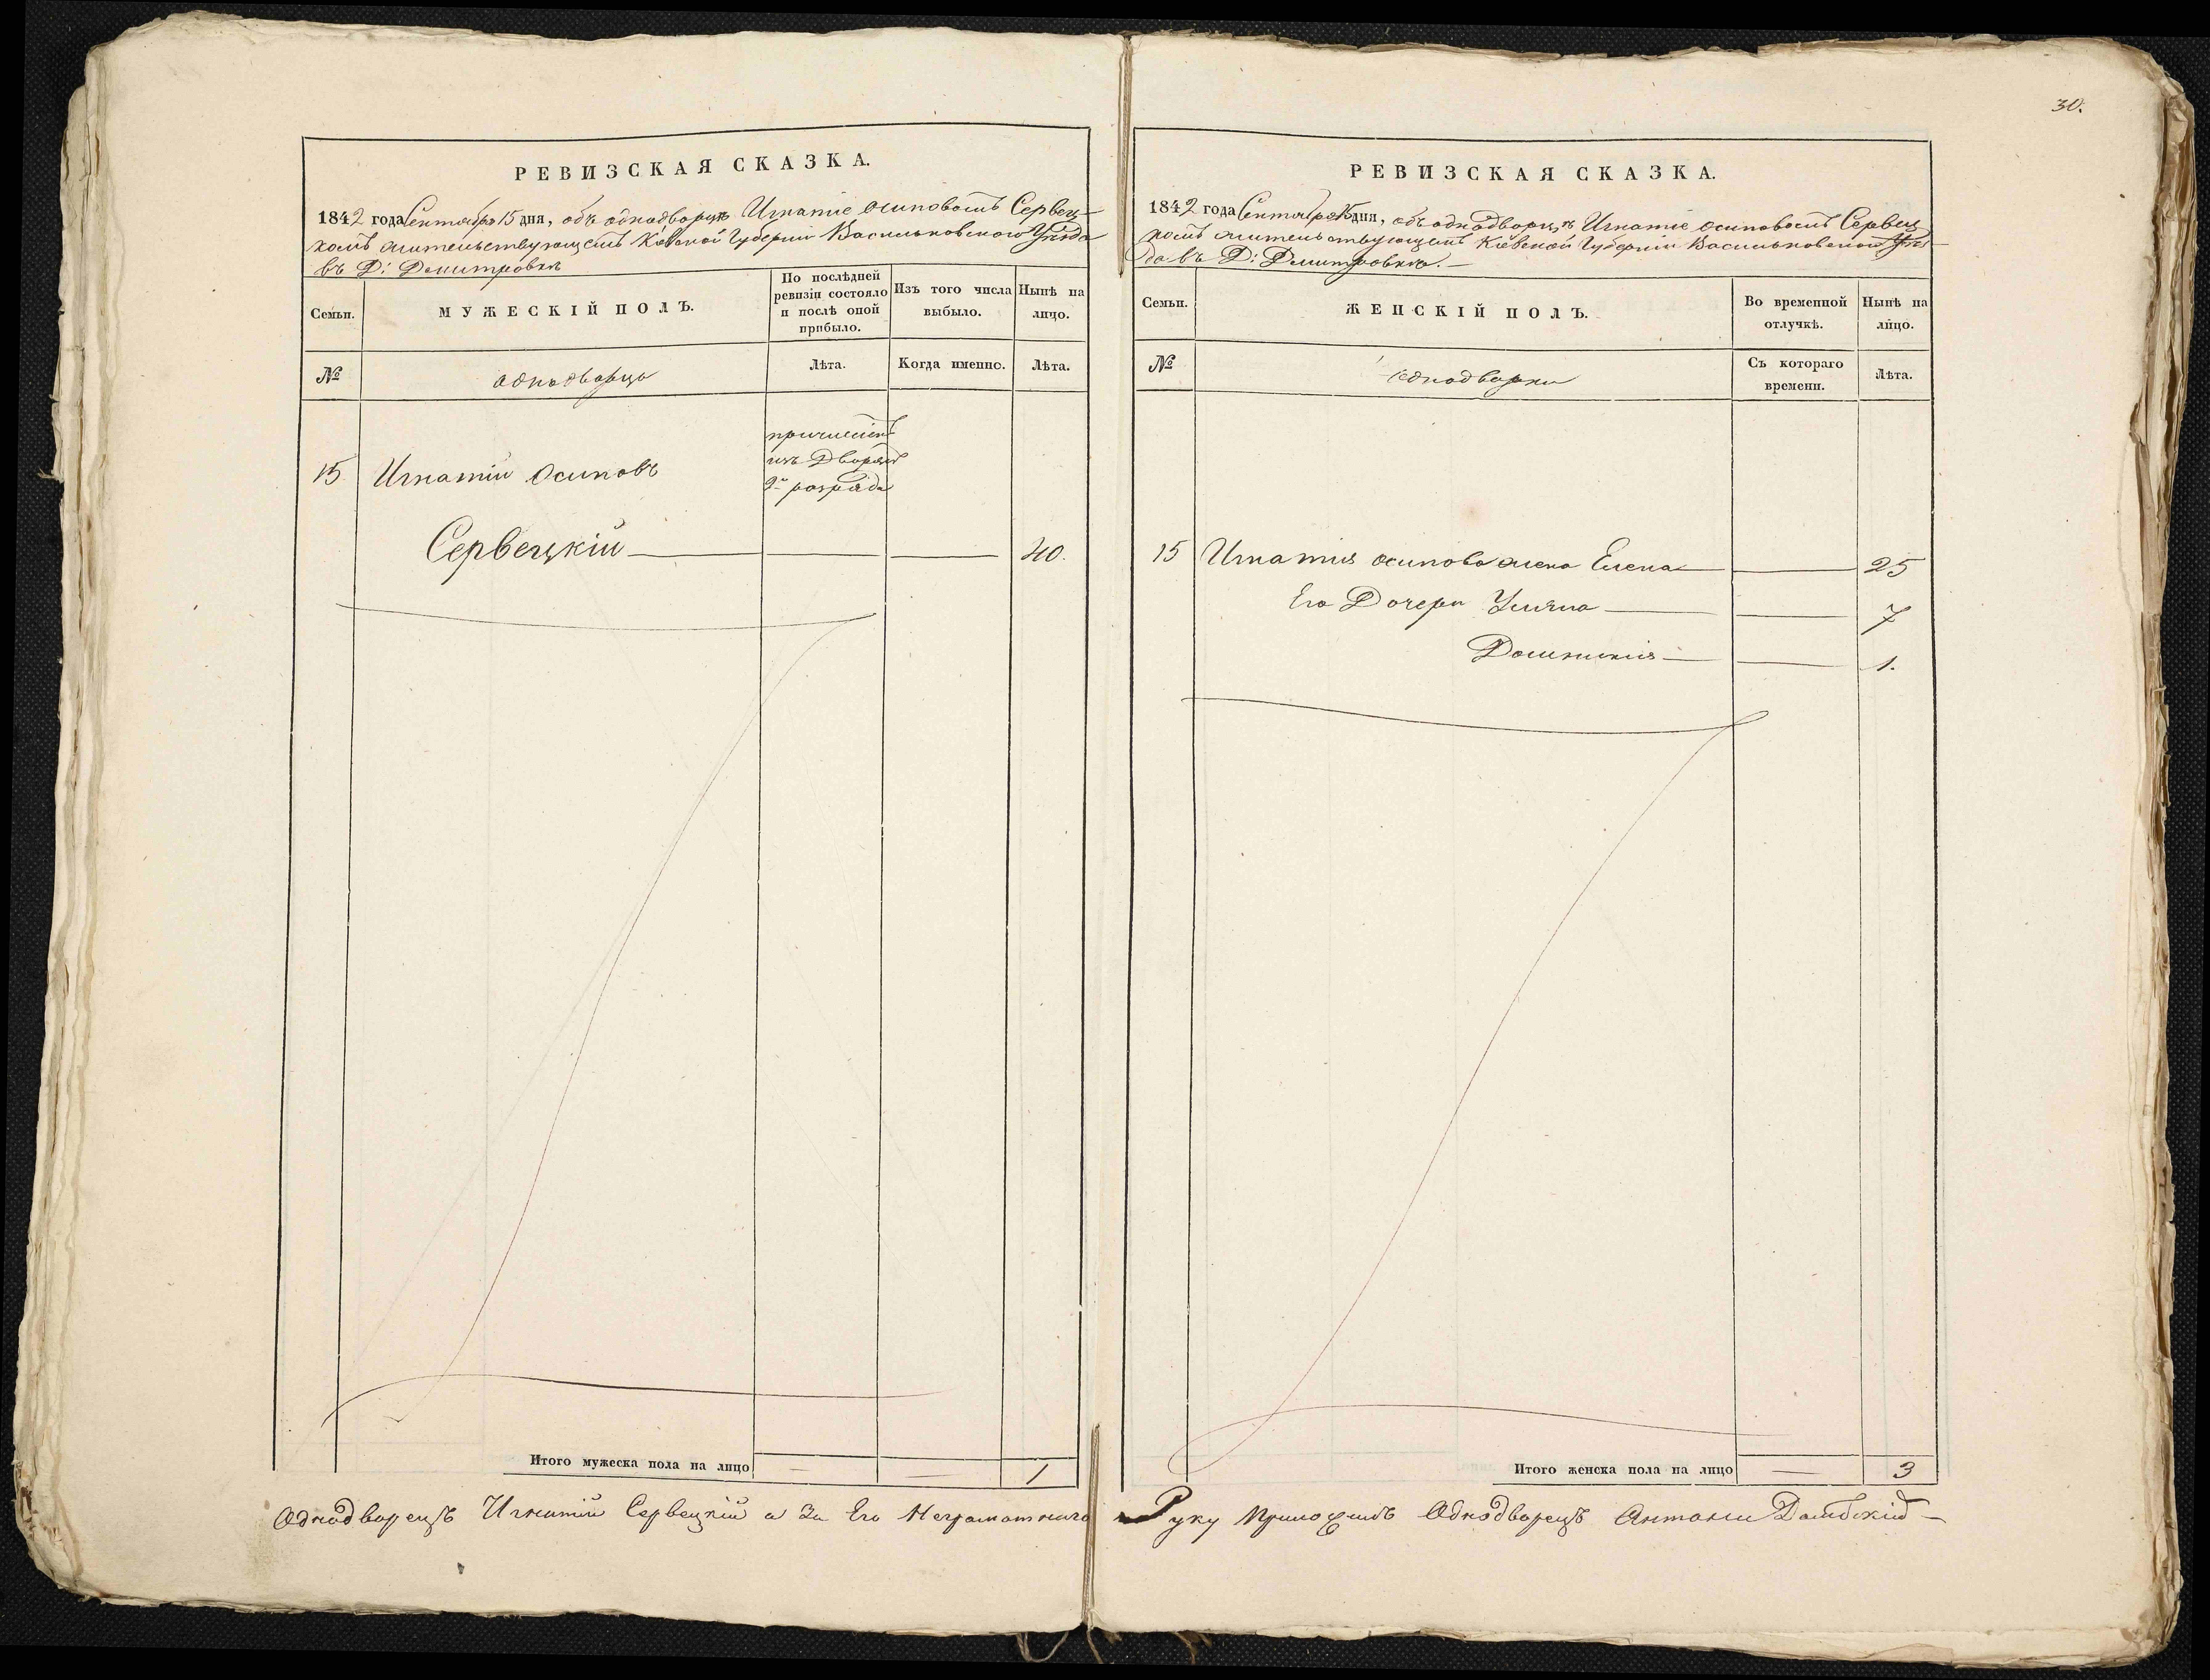 30.
РЕВИЗСКАЯ СКАЗКА.
1842 года Сентября 15 дня, объ однодворцѣ Игнатіе Осиповомъ Сервец-
комъ жительствующемъ Кіевской Губерніи Васильковского Уѣзда
въ Д: Дмитровкѣ
Семьи.
МУЖЕСКІЙ ПОЛЪ.
По послѣдней
ревизіи состояло
и послѣ оной
прибыло.
Изъ того числа
выбыло.
Нынѣ на
лицо.
№
однодворцы
Лѣта.
Когда именно.
Лѣта.
причисленъ
изъ Дворянъ
2го розряда
15 Игнатій Осиповъ
Сервецкій 40.
Итого мужеска пола на лицо — — 1
РЕВИЗСКАЯ СКАЗКА.
1842 года Сентября 15 дня, объ однодворцѣ Игнатіе Осиповомъ Сервец
комъ жительствующемъ Кіевской Губерніи Васильковского Уѣз-
да въ Д: Дмитровкѣ. —
Семьи.
ЖЕНСКІЙ ПОЛЪ.
Во временной
отлучкѣ.
Нынѣ на
лицо.
№
однодворки
Съ котораго
времени.
Лѣта.
15 Игнатія Осипова жена Елена 25
Его Дочери Уліяна 7
Домникія 1.
Итого женска пола на лицо — 3
Однодворецъ Игнатій Сервецкій а За Его Неграмотного Руку Приложилъ Однодворецъ Антони Домбскій —